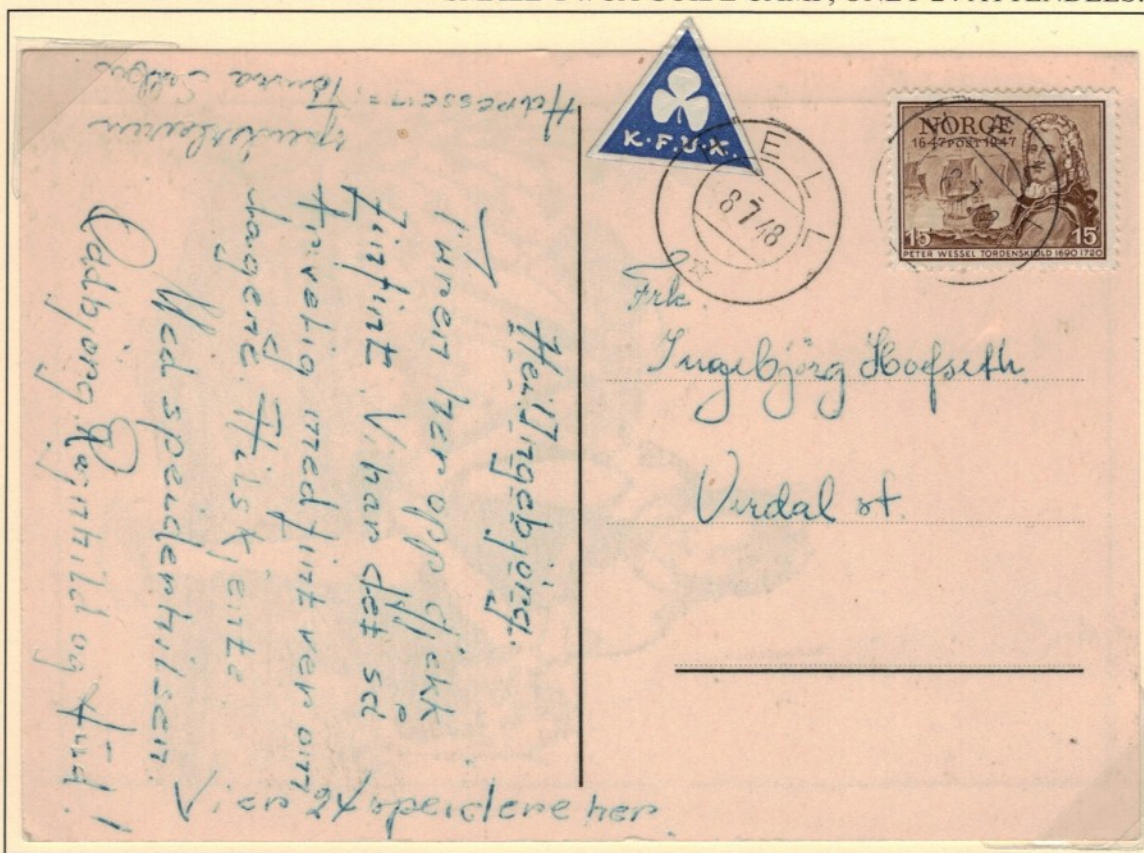 K·F·U·K·
ELL
8 7 48
NORGE
1647 POST 1947
15 15
PETER WESSEL TORDENSKIOLD 1690 1720
Frk.
Ingebjörg Hofseth.
Verdal st.
Adressen =
speiderleiren
Hei Ingebjörg.
Turen her opp gikk
fint. Vi har det så
trivelig med fint ver om
dagene. Hils kjente
Med speiderhilsen.
Oddbjörg, Ragnhild og
Vi er 24 speidere her